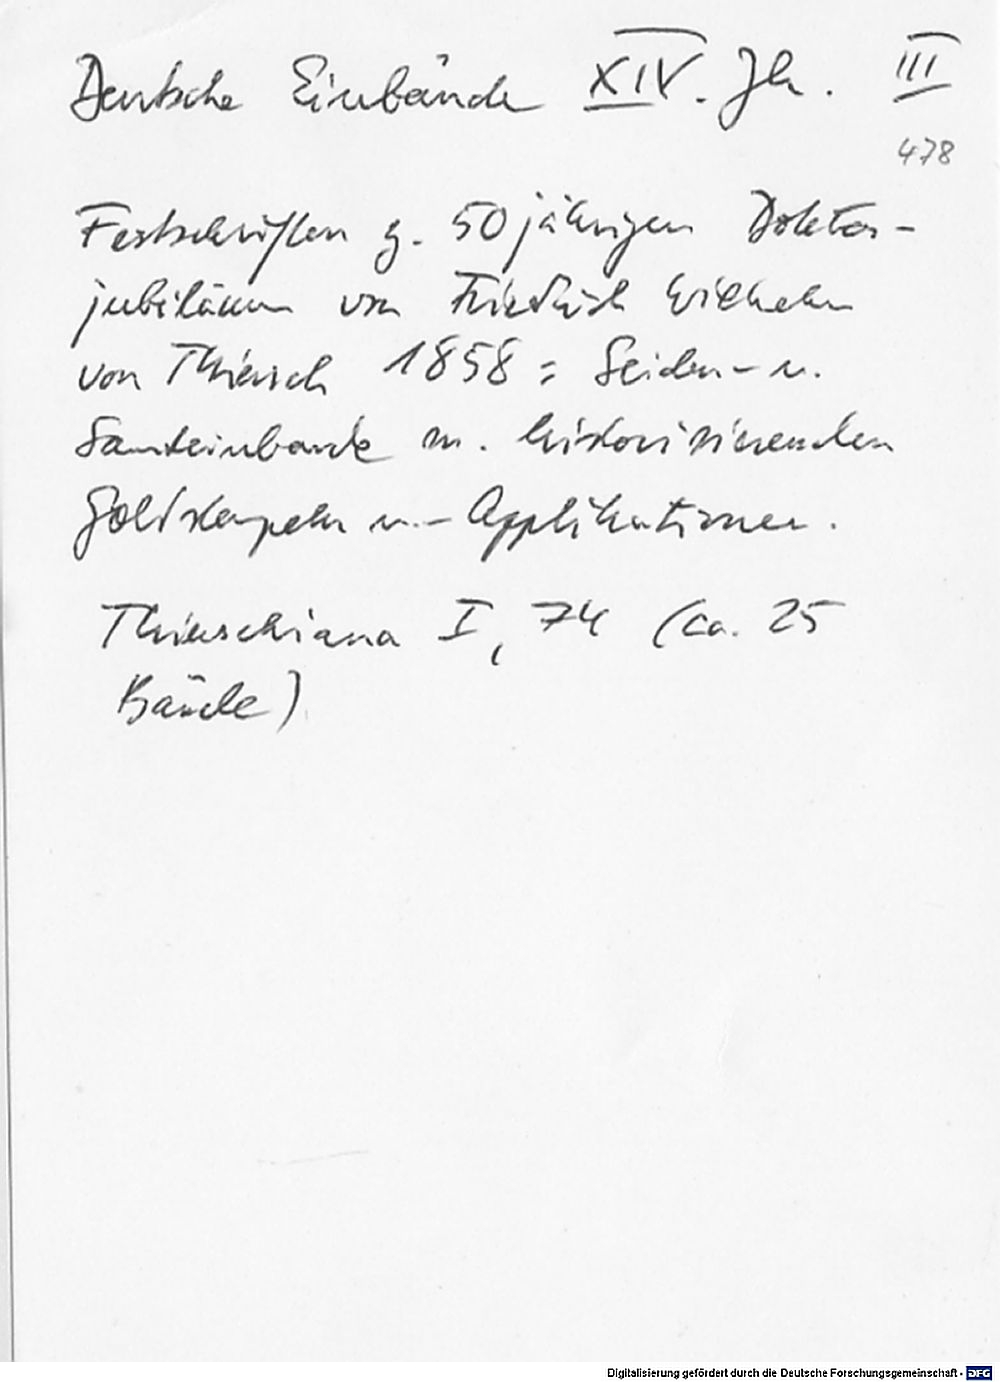 Deutsche Einbände XIV. Jh. III
478
Festschriften z. 50jährigen Doktor-
jubiläum von Friedrich Wilhelm
von Thiersch 1858 = Seiden- u.
Samteinbände m. historisierenden
Goldstempeln u.- Applikationen.
Thierschiana I, 74 (ca. 25
Bände)
Digitalisierung gefördert durch die Deutsche Forschungsgemeinschaft - DFG